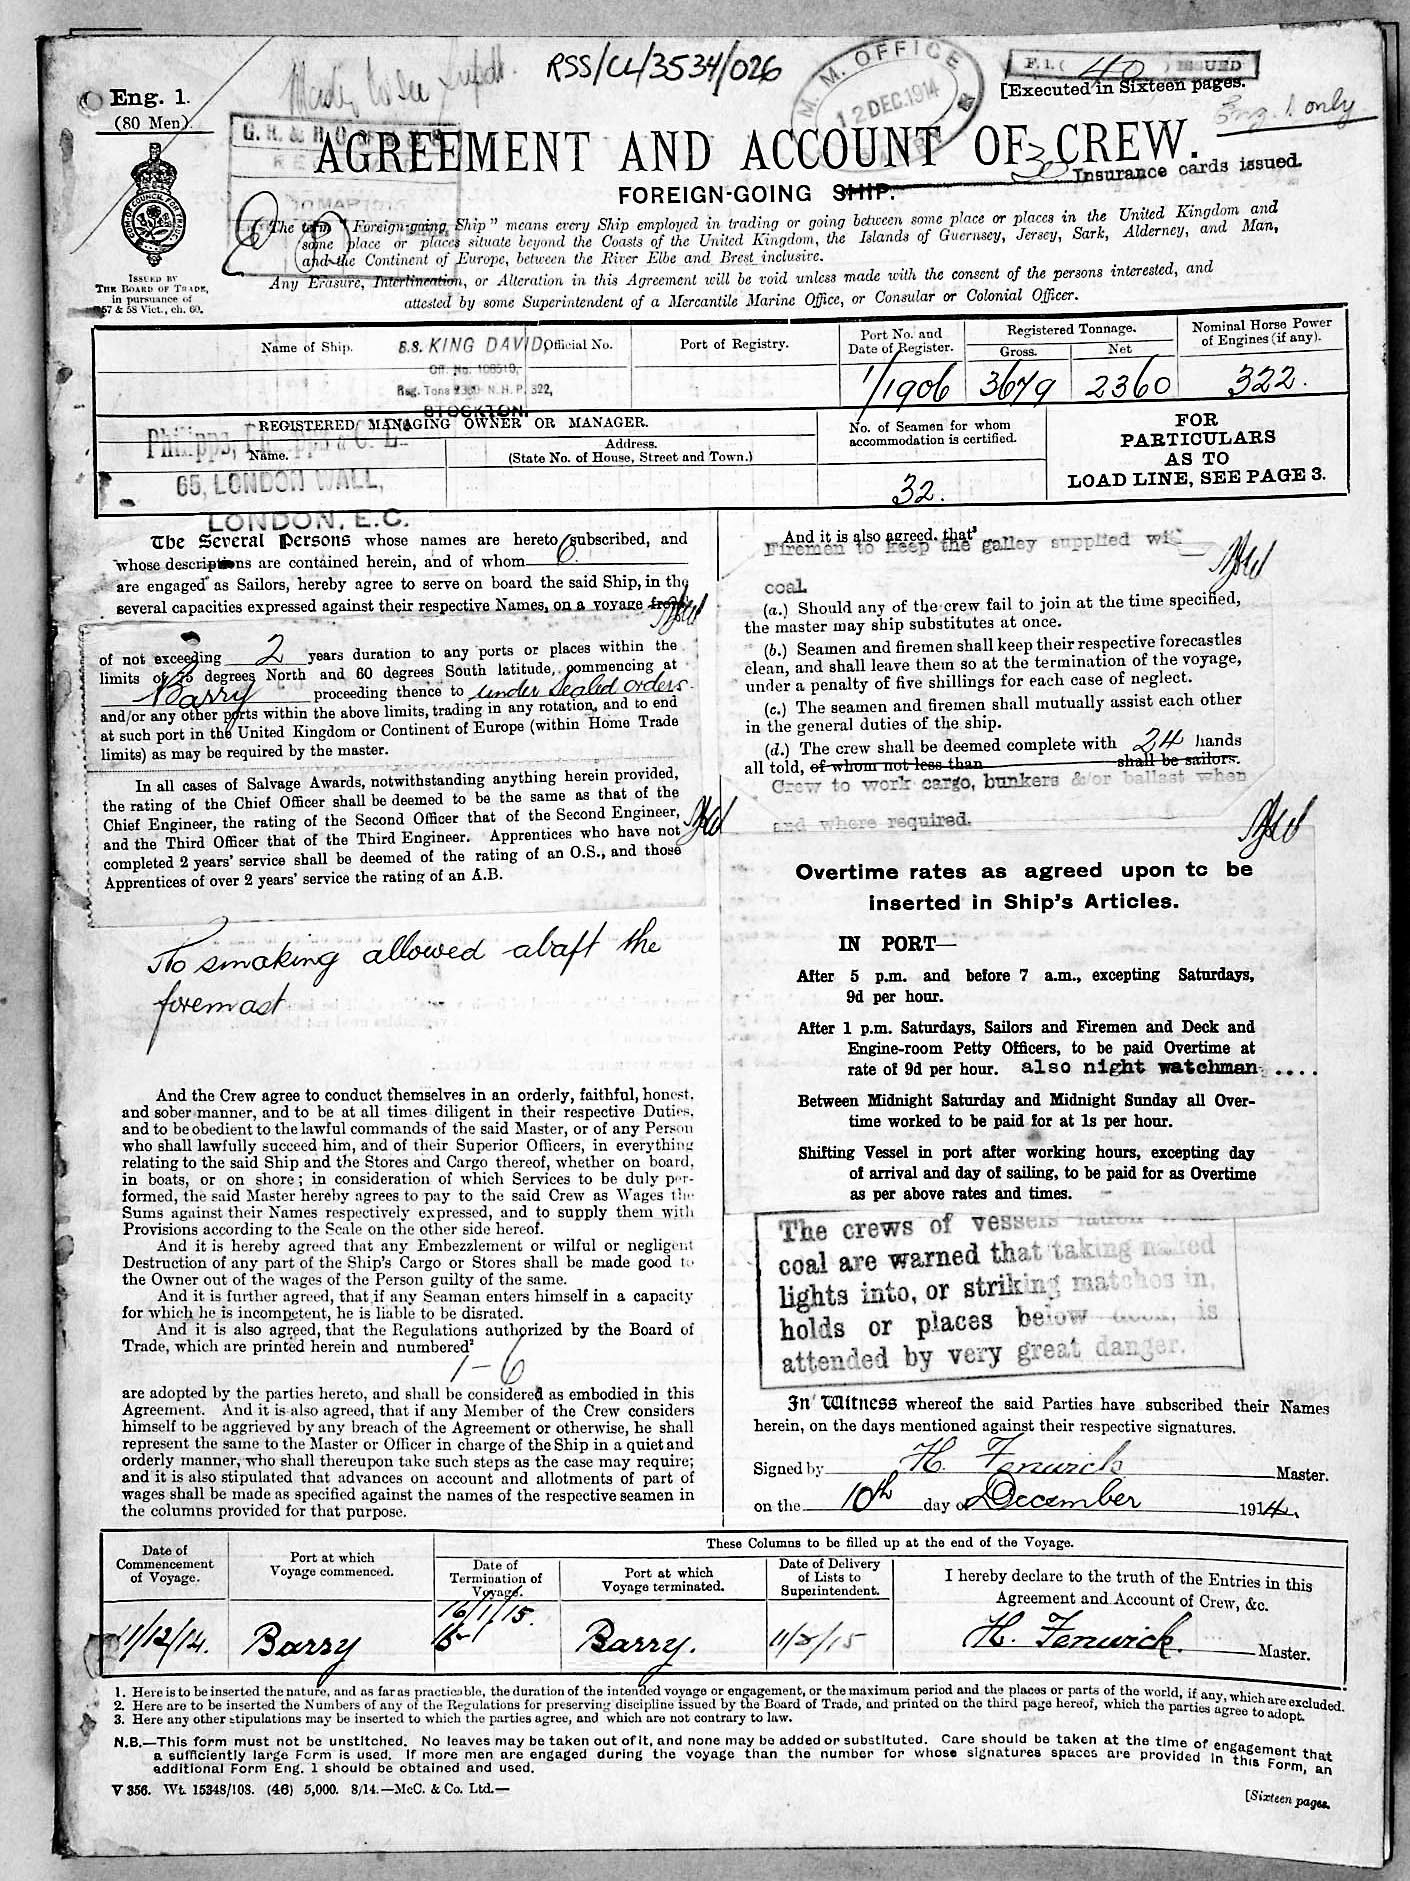 RSS/CL/3534/026
M. M. OFFICE
12 DEC. 1914
F.I. ( 40 ) ISSUED
[Executed in Sixteen pages.
Eng. 1 only
Eng. 1.
(80 Men).
AGREEMENT AND ACCOUNT OF CREW.
30 Insurance cards issued.
FOREIGN-GOING SHIP.
The term "Foreign-going Ship" means every Ship employed in trading or going between some place or places in the United Kingdom and
some place or places situate beyond the Coasts of the United Kingdom, the Islands of Guernsey, Jersey, Sark, Alderney, and Man,
and the Continent of Europe, between the River Elbe and Brest inclusive.
Any Erasure, Interlineation, or Alteration in this Agreement will be void unless made with the consent of the persons interested, and
attested by some Superintendent of a Mercantile Marine Office, or Consular or Colonial Officer.
ISSUED BY
THE BOARD OF TRADE,
in pursuance of
57 & 58 Vict., ch. 60.
Name of Ship.
S.S. KING DAVID,
Official No.
Reg. Tons 2360 N.H.P. 322,
STOCKTON.
Port of Registry.
Port No. and
Date of Register.
1/1906
Registered Tonnage.
Gross.
3679
Net
2360
Nominal Horse Power
of Engines (if any).
322.
REGISTERED MANAGING OWNER OR MANAGER.
Name.
Address.
(State No. of House, Street and Town.)
65, LONDON WALL,
LONDON, E.C.
No. of Seamen for whom
accommodation is certified.
32.
FOR
PARTICULARS
AS TO
LOAD LINE, SEE PAGE 3.
The Several Persons whose names are hereto subscribed, and
whose descriptions are contained herein, and of whom 6
are engaged as Sailors, hereby agree to serve on board the said Ship, in the
several capacities expressed against their respective Names, on a voyage from
of not exceeding 2 years duration to any ports or places within the
limits of 75 degrees North and 60 degrees South latitude, commencing at
Barry proceeding thence to under sealed orders
and/or any other ports within the above limits, trading in any rotation, and to end
at such port in the United Kingdom or Continent of Europe (within Home Trade
limits) as may be required by the master.
In all cases of Salvage Awards, notwithstanding anything herein provided,
the rating of the Chief Officer shall be deemed to be the same as that of the
Chief Engineer, the rating of the Second Officer that of the Second Engineer,
and the Third Officer that of the Third Engineer. Apprentices who have not
completed 2 years' service shall be deemed of the rating of an O.S., and those
Apprentices of over 2 years' service the rating of an A.B.
No smoking allowed abaft the
foremast
And the Crew agree to conduct themselves in an orderly, faithful, honest,
and sober manner, and to be at all times diligent in their respective Duties,
and to be obedient to the lawful commands of the said Master, or of any Person
who shall lawfully succeed him, and of their Superior Officers, in everything
relating to the said Ship and the Stores and Cargo thereof, whether on board,
in boats, or on shore; in consideration of which Services to be duly per-
formed, the said Master hereby agrees to pay to the said Crew as Wages the
Sums against their Names respectively expressed, and to supply them with
Provisions according to the Scale on the other side hereof.
And it is hereby agreed that any Embezzlement or wilful or negligent
Destruction of any part of the Ship's Cargo or Stores shall be made good to
the Owner out of the wages of the Person guilty of the same.
And it is further agreed, that if any Seaman enters himself in a capacity
for which he is incompetent, he is liable to be disrated.
And it is also agreed, that the Regulations authorized by the Board of
Trade, which are printed herein and numbered²
1 - 6
are adopted by the parties hereto, and shall be considered as embodied in this
Agreement. And it is also agreed, that if any Member of the Crew considers
himself to be aggrieved by any breach of the Agreement or otherwise, he shall
represent the same to the Master or Officer in charge of the Ship in a quiet and
orderly manner, who shall thereupon take such steps as the case may require;
and it is also stipulated that advances on account and allotments of part of
wages shall be made as specified against the names of the respective seamen in
the columns provided for that purpose.
And it is also agreed, that³
Firemen to keep the galley supplied with
coal.
(a.) Should any of the crew fail to join at the time specified,
the master may ship substitutes at once.
(b.) Seamen and firemen shall keep their respective forecastles
clean, and shall leave them so at the termination of the voyage,
under a penalty of five shillings for each case of neglect.
(c.) The seamen and firemen shall mutually assist each other
in the general duties of the ship.
(d.) The crew shall be deemed complete with 24 hands
all told, of whom not less than shall be sailors.
Crew to work cargo, bunkers &/or ballast when
and where required.
Overtime rates as agreed upon to be
inserted in Ship's Articles.
IN PORT—
After 5 p.m. and before 7 a.m., excepting Saturdays,
9d per hour.
After 1 p.m. Saturdays, Sailors and Firemen and Deck and
Engine-room Petty Officers, to be paid Overtime at
rate of 9d per hour. also night watchman ....
Between Midnight Saturday and Midnight Sunday all Over-
time worked to be paid for at 1s per hour.
Shifting Vessel in port after working hours, excepting day
of arrival and day of sailing, to be paid for as Overtime
as per above rates and times.
The crews of vessels laden with
coal are warned that taking naked
lights into, or striking matches in,
holds or places below deck, is
attended by very great danger.
In Witness whereof the said Parties have subscribed their Names
herein, on the days mentioned against their respective signatures.
Signed by H. Fenwick Master.
on the 10th day of December 1914.
Date of
Commencement
of Voyage.
11/12/14.
Port at which
Voyage commenced.
Barry
These Columns to be filled up at the end of the Voyage.
Date of
Termination of
Voyage.
16/1/15.
Port at which
Voyage terminated.
Barry.
Date of Delivery
of Lists to
Superintendent.
I hereby declare to the truth of the Entries in this
Agreement and Account of Crew, &c.
H. Fenwick. Master.
1. Here is to be inserted the nature, and as far as practicable, the duration of the intended voyage or engagement, or the maximum period and the places or parts of the world, if any, which are excluded.
2. Here are to be inserted the Numbers of any of the Regulations for preserving discipline issued by the Board of Trade, and printed on the third page hereof, which the parties agree to adopt.
3. Here any other stipulations may be inserted to which the parties agree, and which are not contrary to law.
N.B.—This form must not be unstitched. No leaves may be taken out of it, and none may be added or substituted. Care should be taken at the time of engagement that
a sufficiently large Form is used. If more men are engaged during the voyage than the number for whose signatures spaces are provided in this Form, an
additional Form Eng. 1 should be obtained and used.
V 356. Wt. 15348/108. (46) 5,000. 8/14.—McC. & Co. Ltd.—
[Sixteen pages.